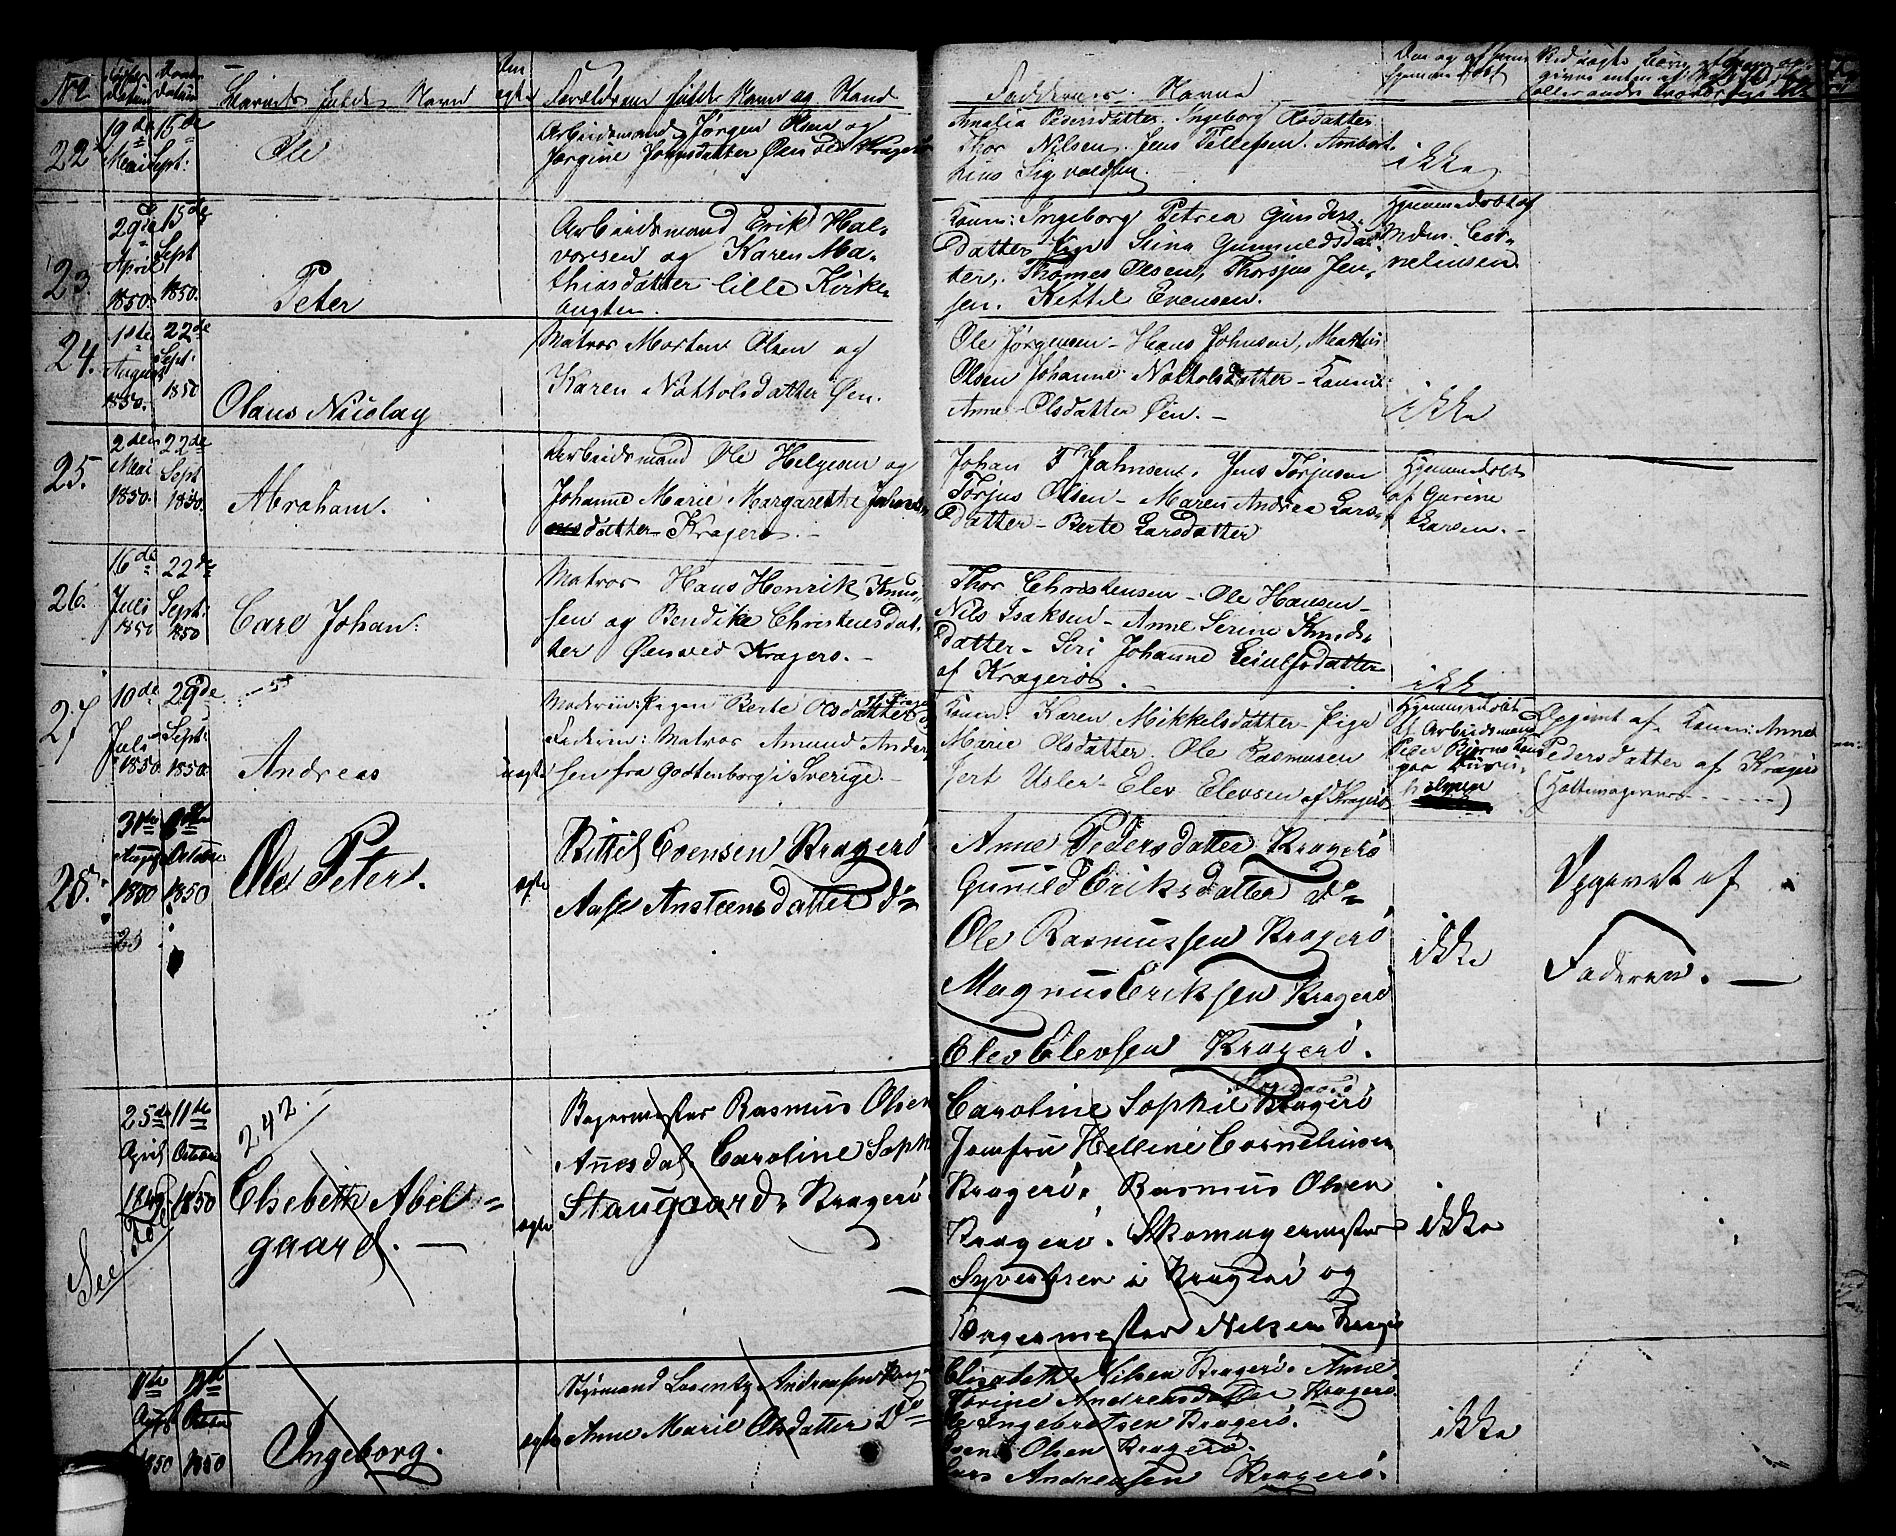 No. Fødsels Datum Daabs datum Barnets fulde Navn Om ægte Forældrenes fulde Navn og Stand Faddernes Navne Om og af hvem hjemmedøbt Ved uægte Børn
22 19de Mai 15de Sept: Ole
Arbeidsmand Jørgen Olsen og
Jørgine Johnsdatter Øen ved Kragerø
Amalia Pedersdatter. Ingeborg Olsdatter
Thor Nilsen. Jens Tellefsen.
Sigvaldsen.
ikke
23. 29de April 1850. 15de Sept 1850. Peter
Arbeidsmand Erik Hal-
vorsen og Karen Ma-
thiasdatter lille Kirke-
bugten.
Konen: Ingeborg Petrea Gunders-
datter, Stina Gunnuldsdat-
ter, Thomes Olsen, Thorsjus Jen-
sen. Kettil Evensen.
Hjemmedøbt af
Mdm. Cor-
neliussen.
24. 1ste August 1850. 22de Sept: 1850 Olaus Nicolay
Matros Morten Olsen og
Karen Nottolsdatter Øen.
Ole Jørgensen - Hans Johnsen, Martin
Olsen Johanne Nottolsdatter - Konen:
Anne Olsdatter Øen. -
ikke
25. 2den Mai 1850. 22de Sept 1850. Abraham.
Arbeidsmand Ole Helgesen og
Johanne Marie Margarethe Johann-
datter Kragerø. -
Johan F Jahnsen. Jens Torjusen
Torjus Olsen - Maren Andrea Lars-
datter - Berte Larsdatter
Hjemmedøbt
af Gurine
Larsen. -
26. 16de Juli 1850 22de Sept: 1850 Carl Johan.
Matros Hans Henrik Knud-
sen og Bendike Christensdat-
ter Øen ved Kragerø. -
Thor Christensen - Ole Hansen -
Nils Isaksen - Anne Serine Knuds-
datter - Siri Johanne Leiulfsdatter
af Kragerø. -
ikke
27 10de Juli 1850. 29de Sept: 1850. Andreas uægte
Moderen: Pigen Berte Olsdatter af Kragerø
Faderen: Matros Amund Ander-
sen fra Gottenborg i Sverige. -
Konen: Karen Mikkelsdatter - Pige
Marie Olsdatter. Ole Rasmusen
Jert Usler - Elev Elevsen af Kragerø
Hjemmedøbt
af Arbeidsmand
Peder Bjørnsen
paa
holmen
Opgivet af Konen: Anne
Pedersdatter af Kragerø
28. 31te August 1850 October 1850 Ole Peter. ægte
Kittil Evensen Kragerø
Aase Ansteensdatter do
Anne Pedersdatter Kragerø
Gunild Eriksdatter do
Ole Rasmussen Kragerø
Magnus Eriksen Kragerø
Elev Elevsen Kragerø.
ikke
Opgivet af
Faderen. -
25de April 1849. 11te October 1850 242. Elsebeth Abel-
gaard. - ægte
Bagermester Rasmus Olsen
Anesdal. Caroline Soph
Staugaard. Kragerø
Caroline Sophie Kragerø
Jomfru Helline Cornelinsen
Kragerø. Rasmus Olsen
Kragerø. Skomagermester
Syvertsen i Kragerø og
Bagermester Nilsen Kragerø
ikke
See
August 1850 October 1850 Ingeborg. ægte
Styrmand Lorentz Andreasen Krage
Anne Marie Olsdatter Do
Elisabeth Nilsen Kragerø. Anne
Torine Andreasdatter Kragerø
Ole Ingebretsen Kragerø.
Svend Olsen Kragerø.
Lars Andreasen Kragerø.
ikke